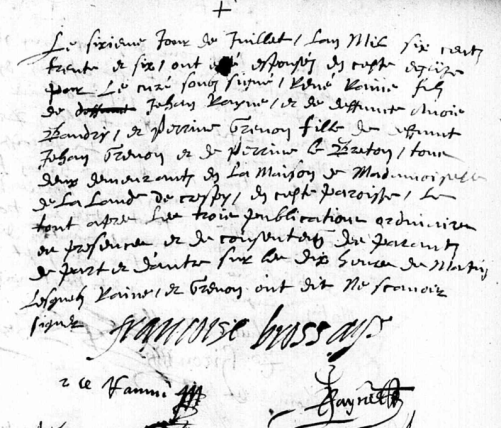 Le sixieme Jour de Juillet, Lan Mil six centz
trente et six, ont esté espousez en ceste eglize
par Le curé soubz signé, René Raine filz
de deffunct Jehan Rayne, et de deffuncte
Baudry, et Perrine Grenon fille de deffunct
Jehan Grenon et de Perrine le Breton, tous
deux demeurantz en La Maison de Mademoiselle
de La Lande de crespy, en ceste paroisse, Le
tout apres Les trois publications ordinaires
en presence et de consentemt des parants
de part et dautre sur les dix heures de Matin
Lesquelz Raine, et Grenon ont dit Ne scavoir
signer francoise brossays